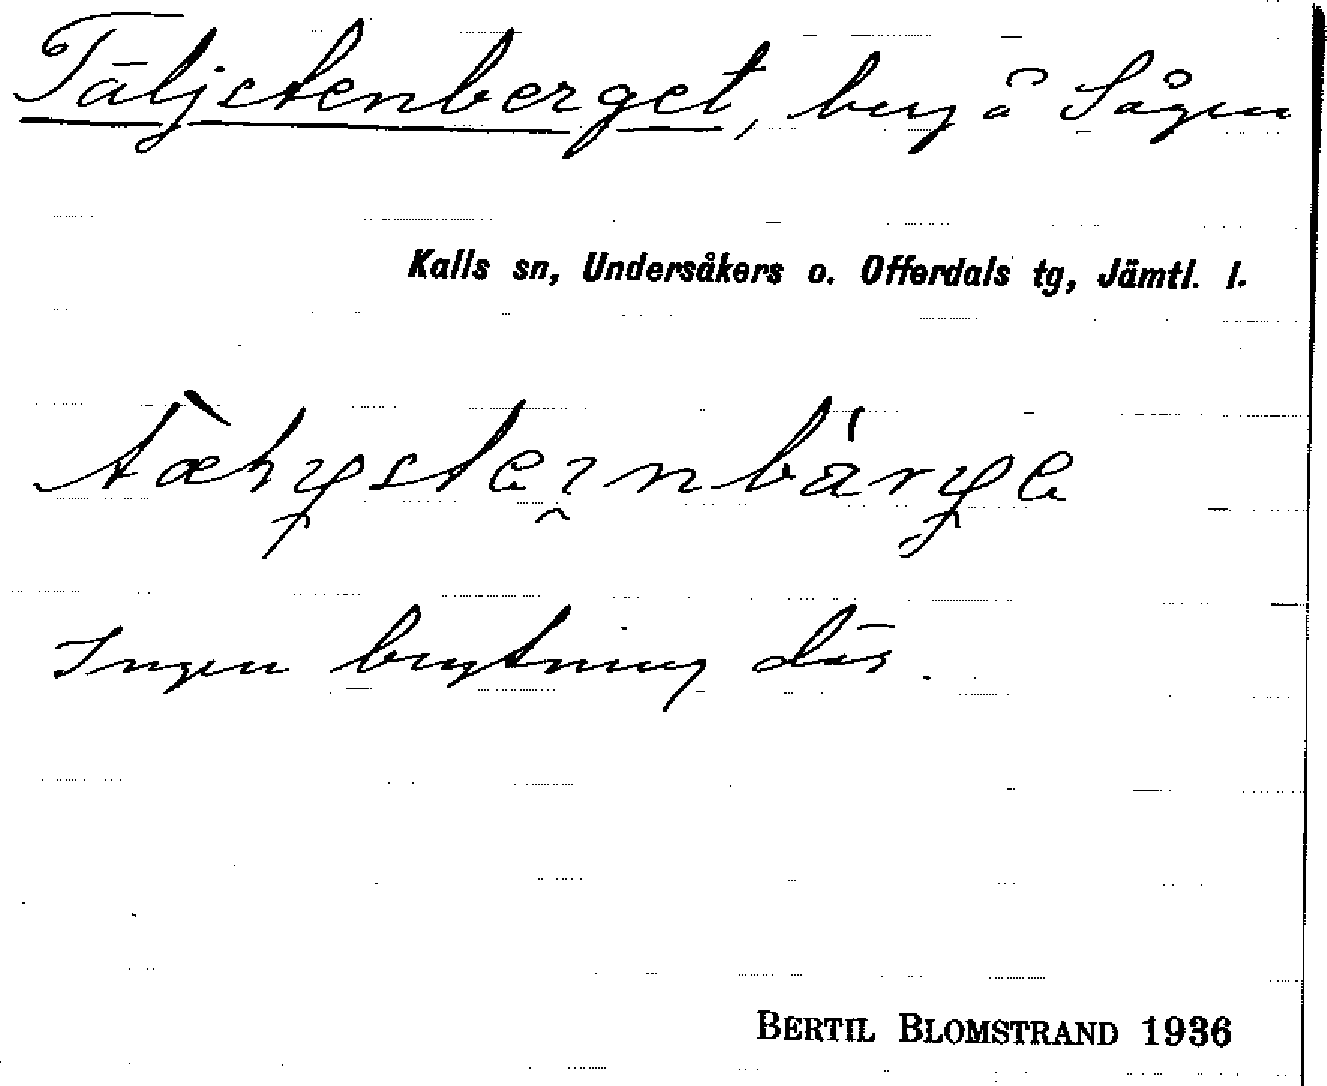 Täljstenberget, berg å Sågen
Kalls sn, Undersåkers o. Offerdals tg, Jämtl. l.
Ingen brytning där.
BERTIL BLOMSTRAND 1936